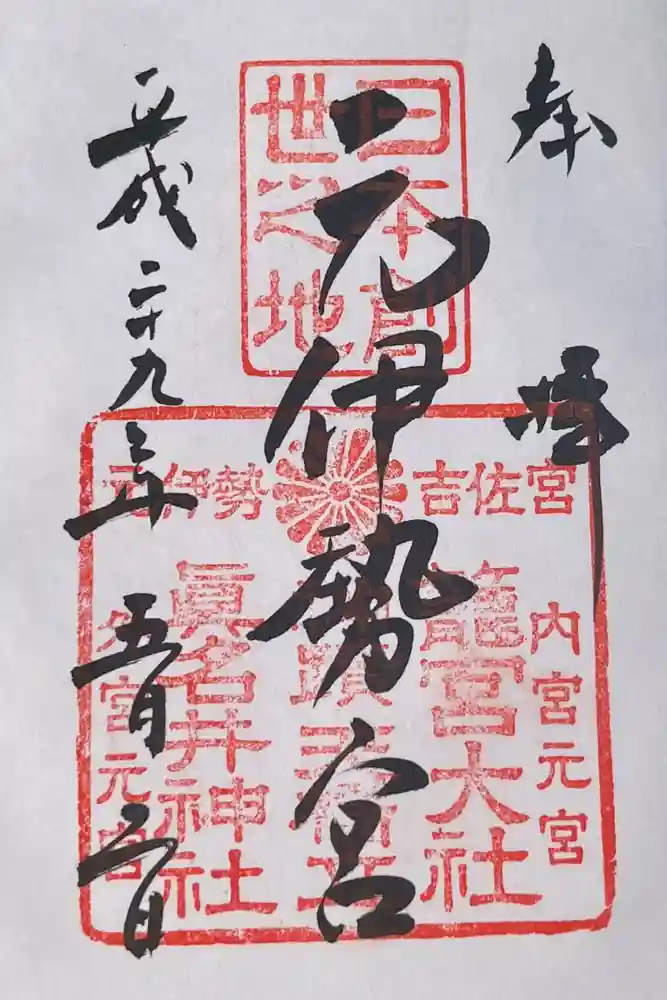 奉拝
元伊勢宮
平成二十九年五月二日
日本創
世之地
吉佐宮
元伊勢
内宮元宮
籠宮大社
眞名井神社
外宮元宮